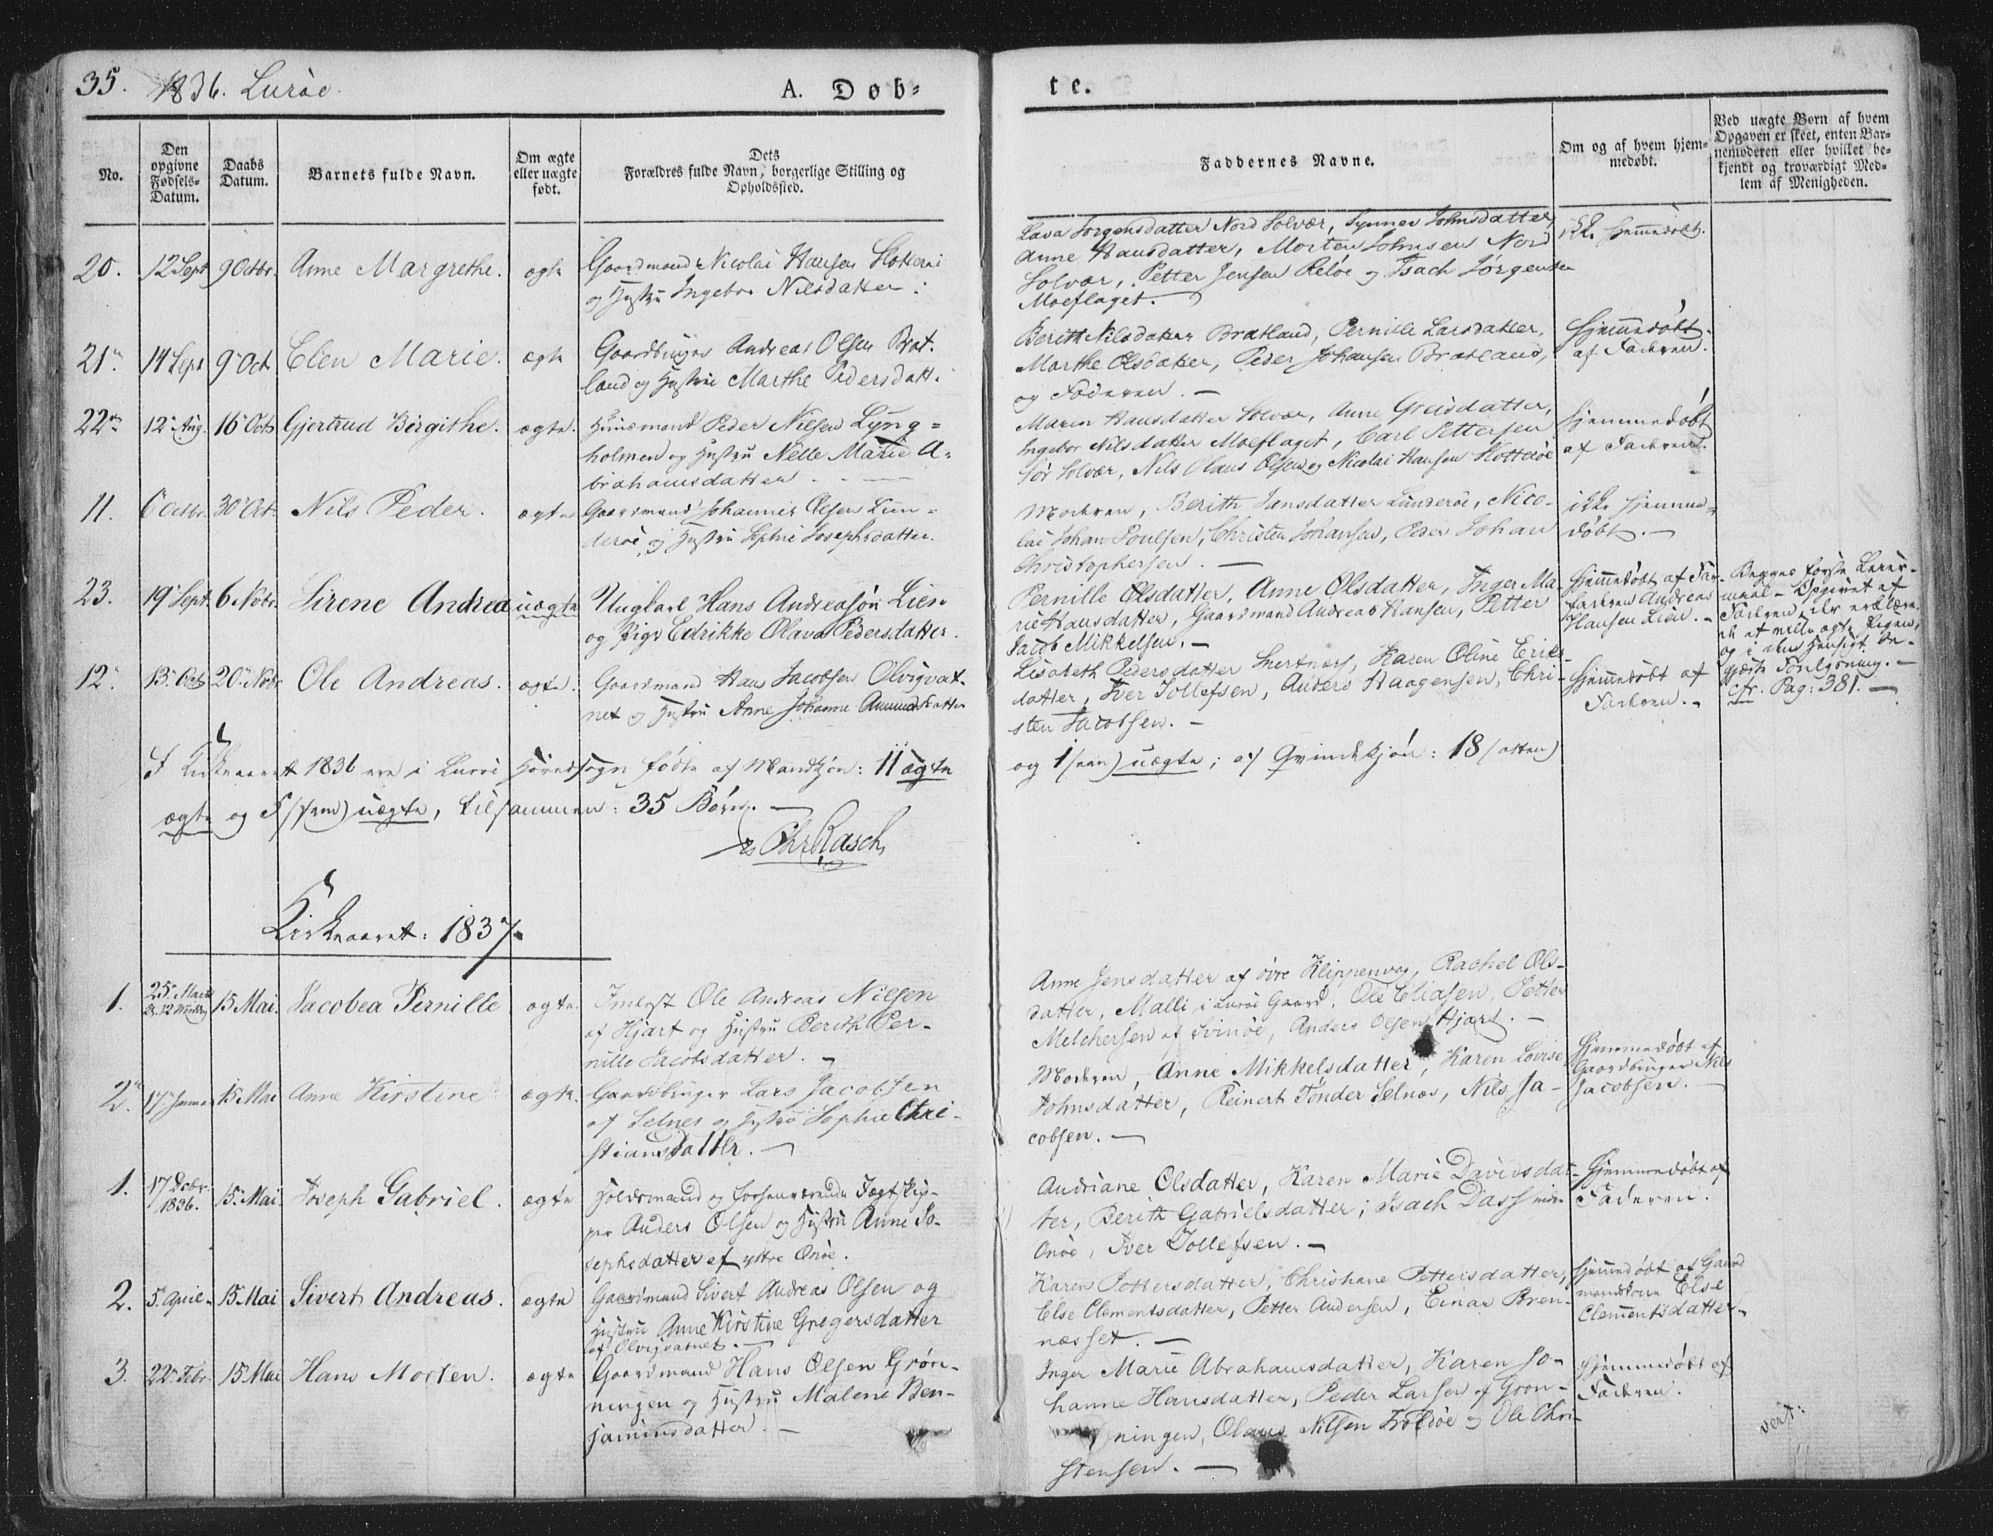 35. 1836. Lurøe.
A. Døb-
te.
No.
Den opgivne Fødsels-Datum.
Daabs Datum.
Barnets fulde Navn.
Om ægte eller uægte født.
Dets Forældres fulde Navn, borgerlige Stilling og Opholdssted.
Faddernes Navne.
Om og af hvem hjemmedøbt.
Ved uægte Børn af hvem Opgaven er skeet, enten Barnemoderen eller hvilket bekjendt og troværdigt Medlem af Menigheden.
20. 12 Sept 9 Octbr. Anne Margrethe. ægte
Gaardmand Nicolai Hansen
og Hustru Ingebor Nilsdatter.
Lava Jørgensdatter Nord Solvær, Synner Johnsdatter,
Anne Hansdatter, Morten Johnsen Nord
Solvær, Petter Jensen Reløe og Isach Jørgensen
Moeflaget.
ikke hjemmedøbt.
21. 14 Sept 9 Oct Elen Marie. ægte
Gaardbruger Andreas Olsen Brat-
land og Hustrue Marthe Pedersdatt.
Berith Nilsdatter Bratland, Pernille Larsdatter,
Marthe Olsdatter, Peder Johansen Bratland,
og Faderen. —
Hjemmedøbt
af Faderen.
22. 12 Aug. 16 Octb Gjertrud Birgithe. ægte.
Huusmand Peder Nilsen Lyng-
holmen og Hustru Nelle Marie A-
brahamsdatter.
Maren Hansdatter Solvær, Anne Greisdatter,
Ingebor Nilsdatter Moeflaget, Carl Pettersen
Sør Solvær, Nils Olaus Olsen og Nicolai Hansen
Hjemmedøbt
af Faderen.
11. 6 Octbr. 30 Oct. Nils Peder. ægte
Gaardmand Johannes Olsen Lun-
derøe og Hustru Sophie Josephsdatter.
Moderen, Berith Jansdatter Lunderøe, Nico-
lai Johan Poulsen, Christen Johansen, Peder Johan
Christophersen. —
ikke hjemme-
døbt. —
23. 19 Sept. 6 Novbr. Sirene Andrea uægte
Ungkarl Hans Andreasøn Lien
og Pige Edrikke Olava Pedersdatter.
Pernille Olsdatter, Anne Olsdatter, Inger Ma-
rie Hansdatter, Gaardmand Andreas Hansen, Petter
Jacob Mikkelsen. —
Hjemmedøbt af Far-
faderen Andreas
Hansen Lien. —
Begges første Leier-
maal — Opgivet af
Faderen, der erklære-
de at ville ægte Pigen,
og i den Hensigt be-
gjærte Forlysning. —
cfr. Pag: 381. —
12. 13 Oct 20 Novbr Ole Andreas. ægte.
Gaardmand Hans Jacobsen Olvigvat-
net og Hustru Anne Johanne Amundsdatter
Lisabeth Pedersdatter, Karen Oline Eriks-
datter, Iver Tollefsen, Anders Haagensen, Chri-
sten Jacobsen. —
Hjemmedøbt af
Faderen. —
I Kirkeaaret 1836 ere i Lurøe Hovedsogn fødte af Mandkjøn: 11 ægte og 1 (een) uægte; af Qvindekjøn: 18 (atten)
ægte og 5 (fem) uægte, tilsammen: 35 Børn. —
Chr Rasch
Kirkeaaret: 1837.
1. 25 Marts 15 Mai. Jacobea Pernille ægte.
Inderst Ole Andreas Nilsen
af Hjart og Hustru Berith Per-
nille Jacobsdatter. —
Anne Jensdatter af øvre Klippenvog, Rachel Ols-
datter, Malli i Lurøe Gaard, Ole Eliasen, Petter
Melchersen af Svinøe, Anders Olsen Hjart. —
2. 17 Januar 15 Mai Anne Kirstine ægte.
Gaardbruger Lars Jacobsen
af Selnes og Hustru Sophie Chri-
stiansdatter. —
Moderen, Anne Mikkelsdatter, Karen Lovise
Johnsdatter, Reinert Tønder Selnæs, Nils Ja-
cobsen. —
Hjemmedøbt af
Gaardbruger Nils
Jacobsen. —
1. 17 Decbr. 1836. 15 Mai. Joseph Gabriel. ægte
Holdsmand og Jagtskip-
per Anders Olsen og Hustru Anne Jo-
sephsdatter af yttre Onøe.
Andriane Olsdatter, Karen Marie Davidsdat-
ter, Berith Gabrielsdatter; Isach Dass indre
Onøe, Iver Tollefsen. —
Hjemmedøbt af
Faderen.
2. 5 April 15 Mai Sivert Andreas. ægte
Gaardmand Sivert Andreas Olsen og
Hustru Anne Kirstine Gregersdatter
af Olvigvatnet. —
Karen Pettersdatter, Christiane Pettersdatter,
Else Clementsdatter, Petter Andersen, Einar Bren-
næsset. —
Hjemmedøbt af Gaard
mandkone Else
Clementsdatter. —
3. 22 Febr. 15 Mai Hans Morten. ægte
Gaardmand Hans Olsen Grøn-
ningen og Hustru Malene Ben-
jaminsdatter. —
Inger Marie Abrahamsdatter, Karen Jo-
hanne Hansdatter, Peder Larsen af Grøn-
ningen, Olaus Nilsen Troldøe og Ole Chri-
stensen. —
Hjemmedøbt af
Faderen.
vert: